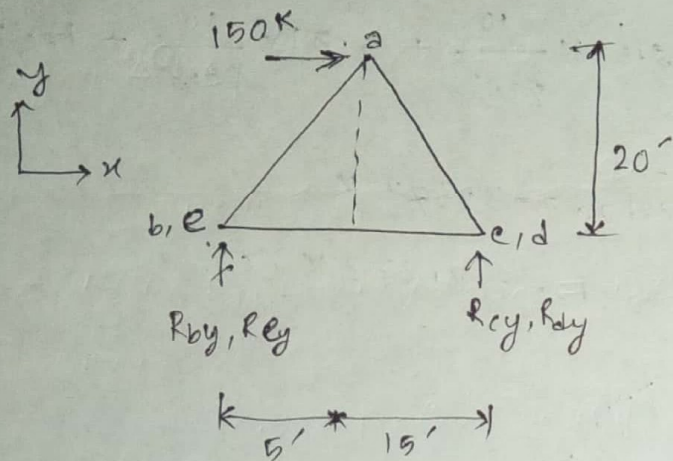 150K a
y
x
20'
b, e c, d
Rby, Rey Rcy, Rdy
5' 15'